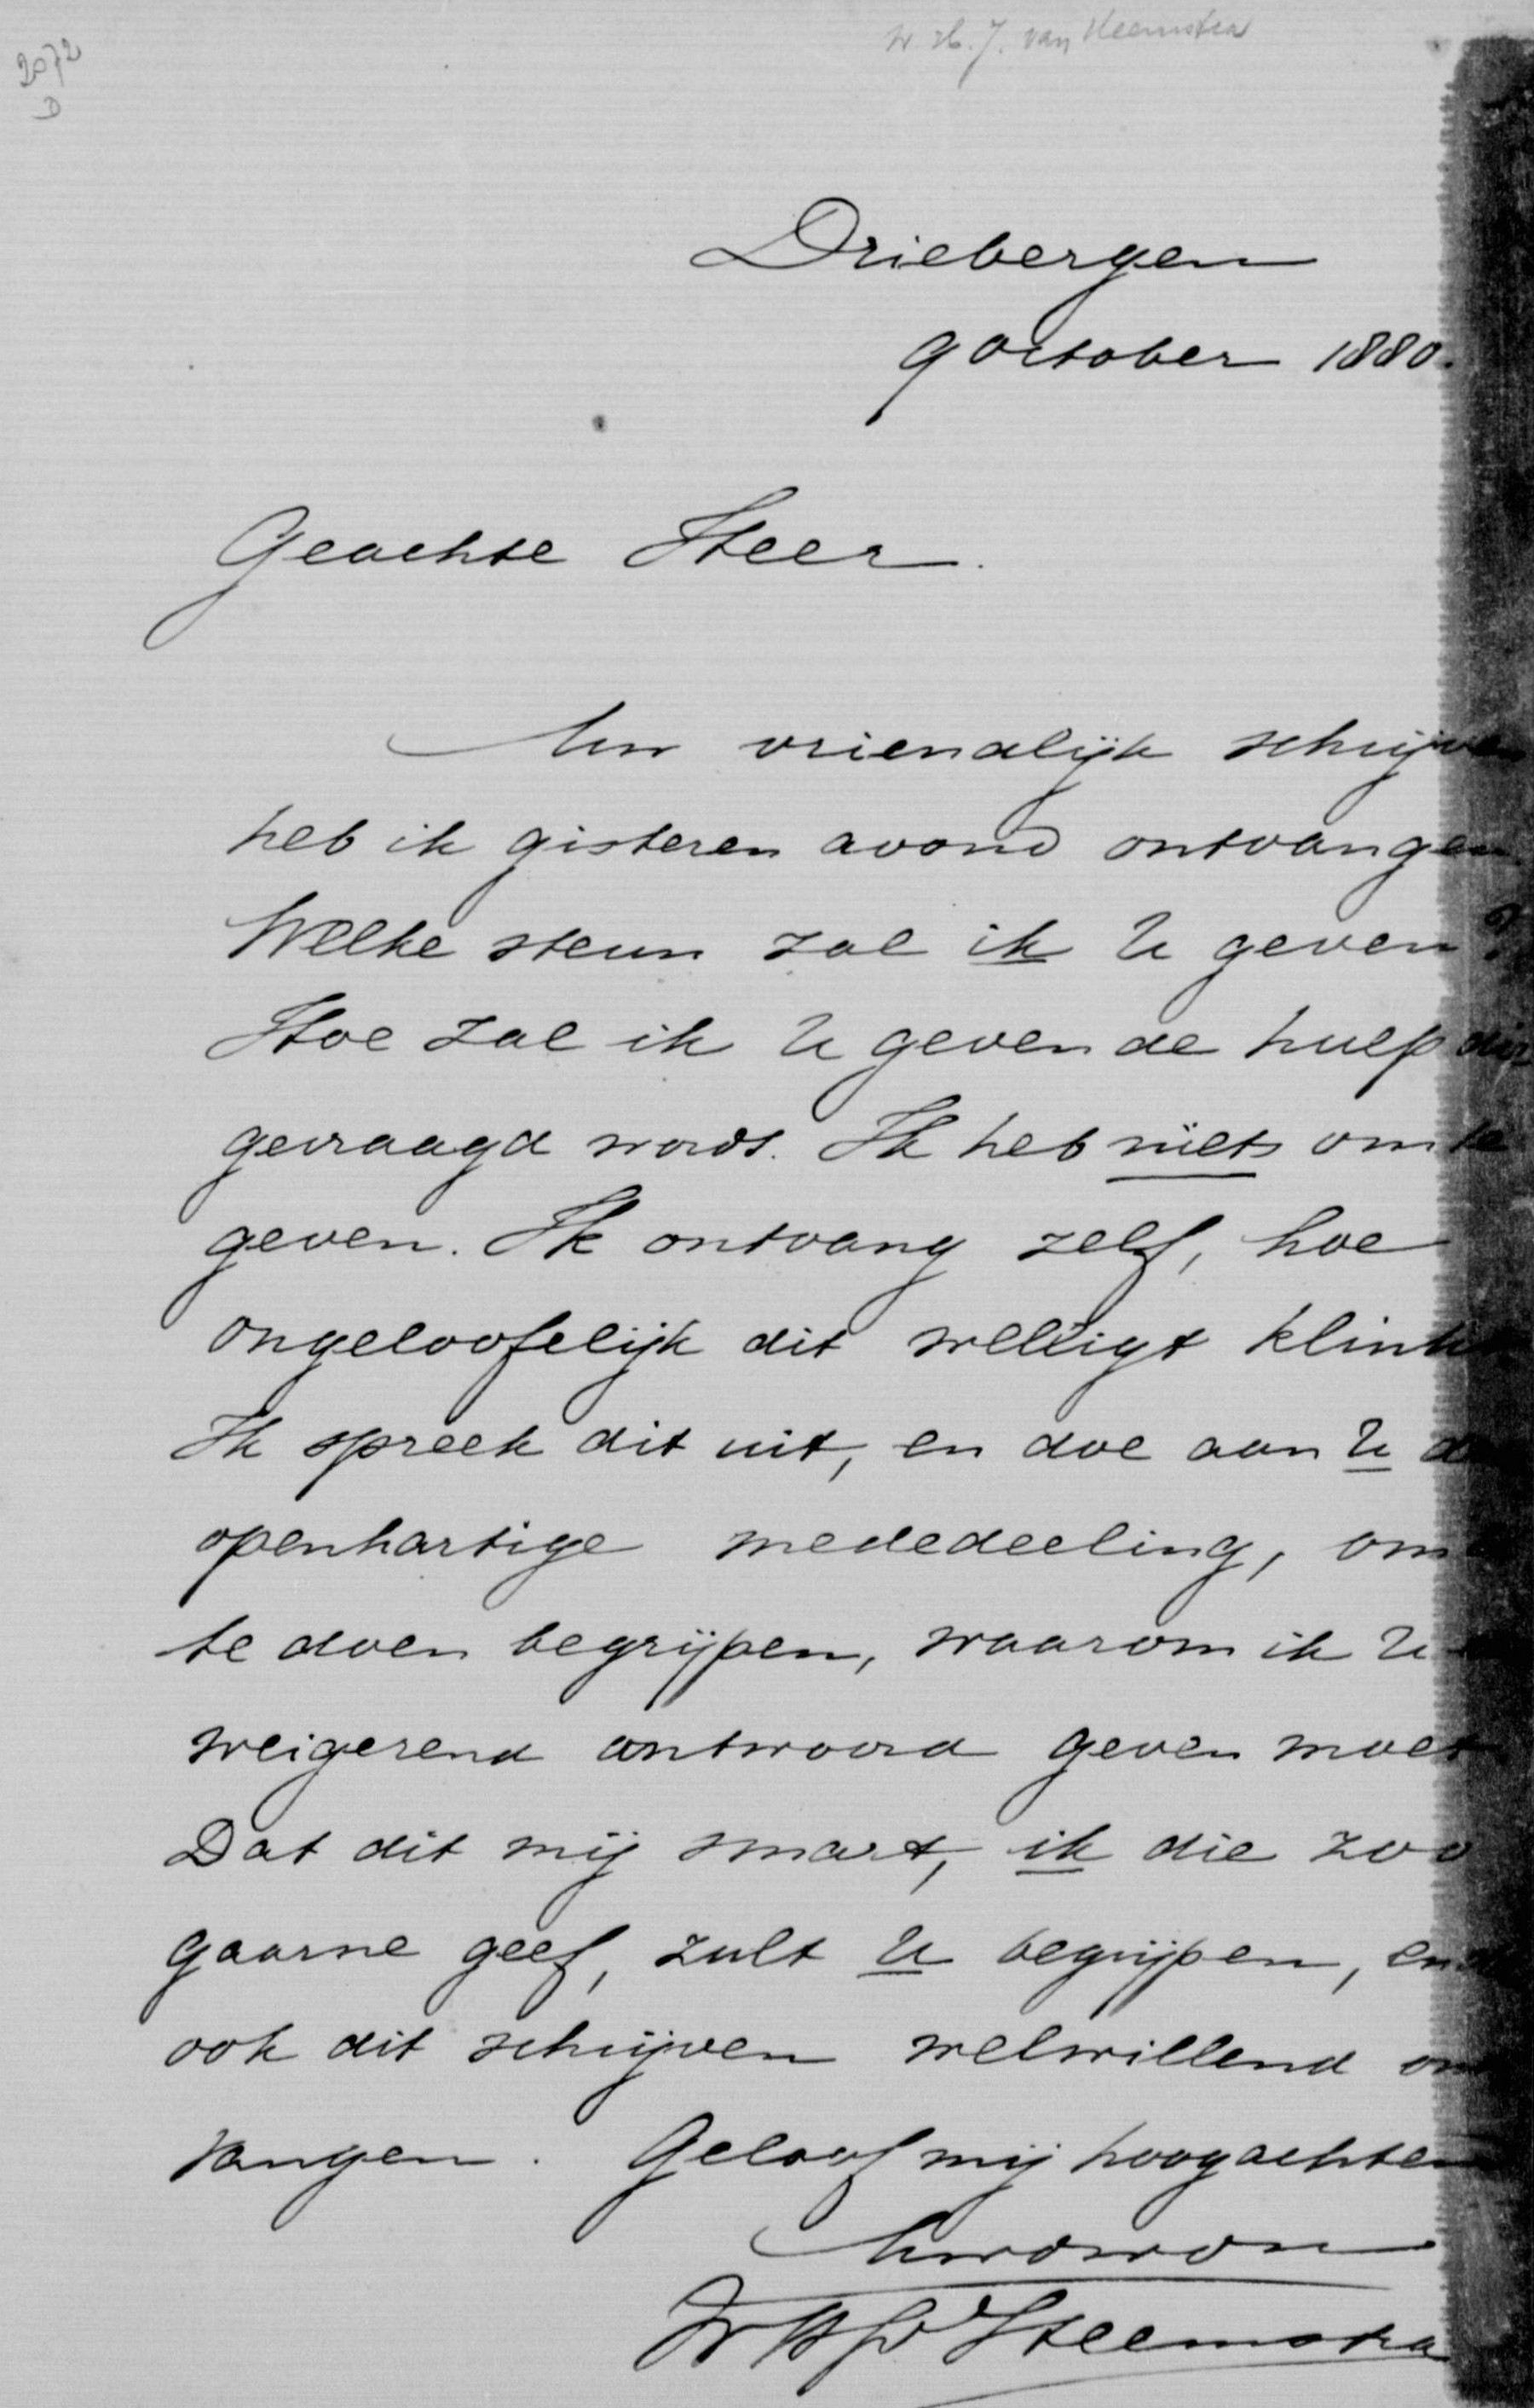 W. H. J. van Heemstra
2072
D
Driebergen
9 October 1880.
Geachte Heer.
Uw vriendlijk schrijven
heb ik gisteren avond ontvangen
Welke steun zal ik U geven?
Hoe zal ik U geven de hulp die
gevraagd wordt. Ik heb niets om te
geven. Ik ontvang zelf, hoe
ongeloofelijk dit welligt klink
Ik spreek dit uit, en doe aan U d
openhartige mededeeling, om
te doen begrijpen, waarom ik U
weigerend antwoord geven moet
Dat dit mij smart, ik die zoo
gaarne geef, zult U begrijpen, en
ook dit schrijven welwillend ont
vangen. Geloof mij hoogachten
Uwdwdn
WHJv Heemstra